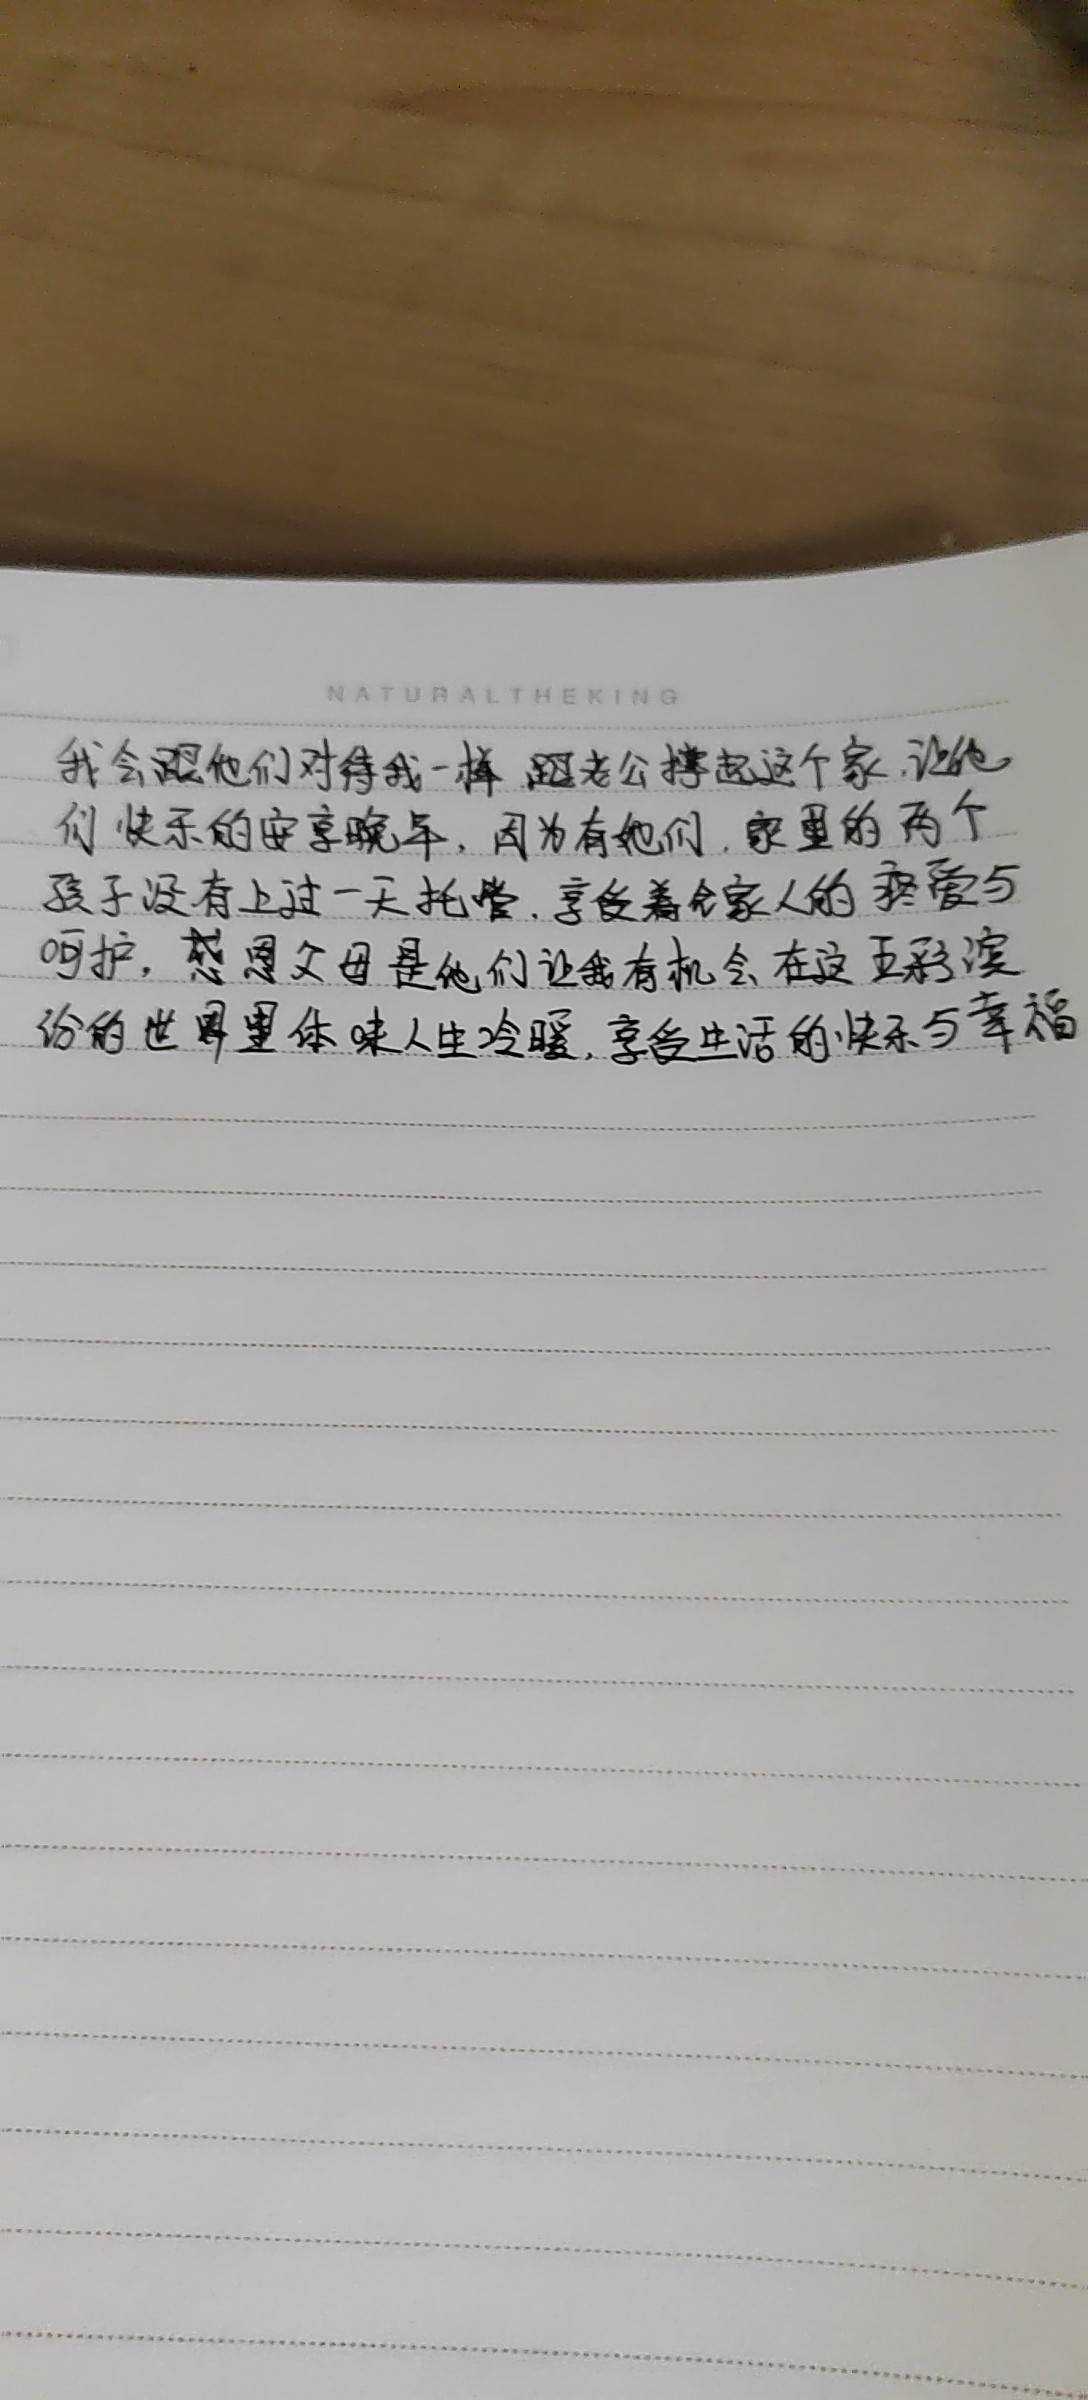 NATURALTHEKING
我会跟他们对待我一样,跟老公撑起这个家,让他
们快乐的安享晚年,因为有他们,家里的两个
孩子没有上过一天托管,享受着全家人的疼爱与
呵护,感恩父母是他们让我有机会在这五彩滨
份的世界里体味人生冷暖,享受生活的快乐与幸福